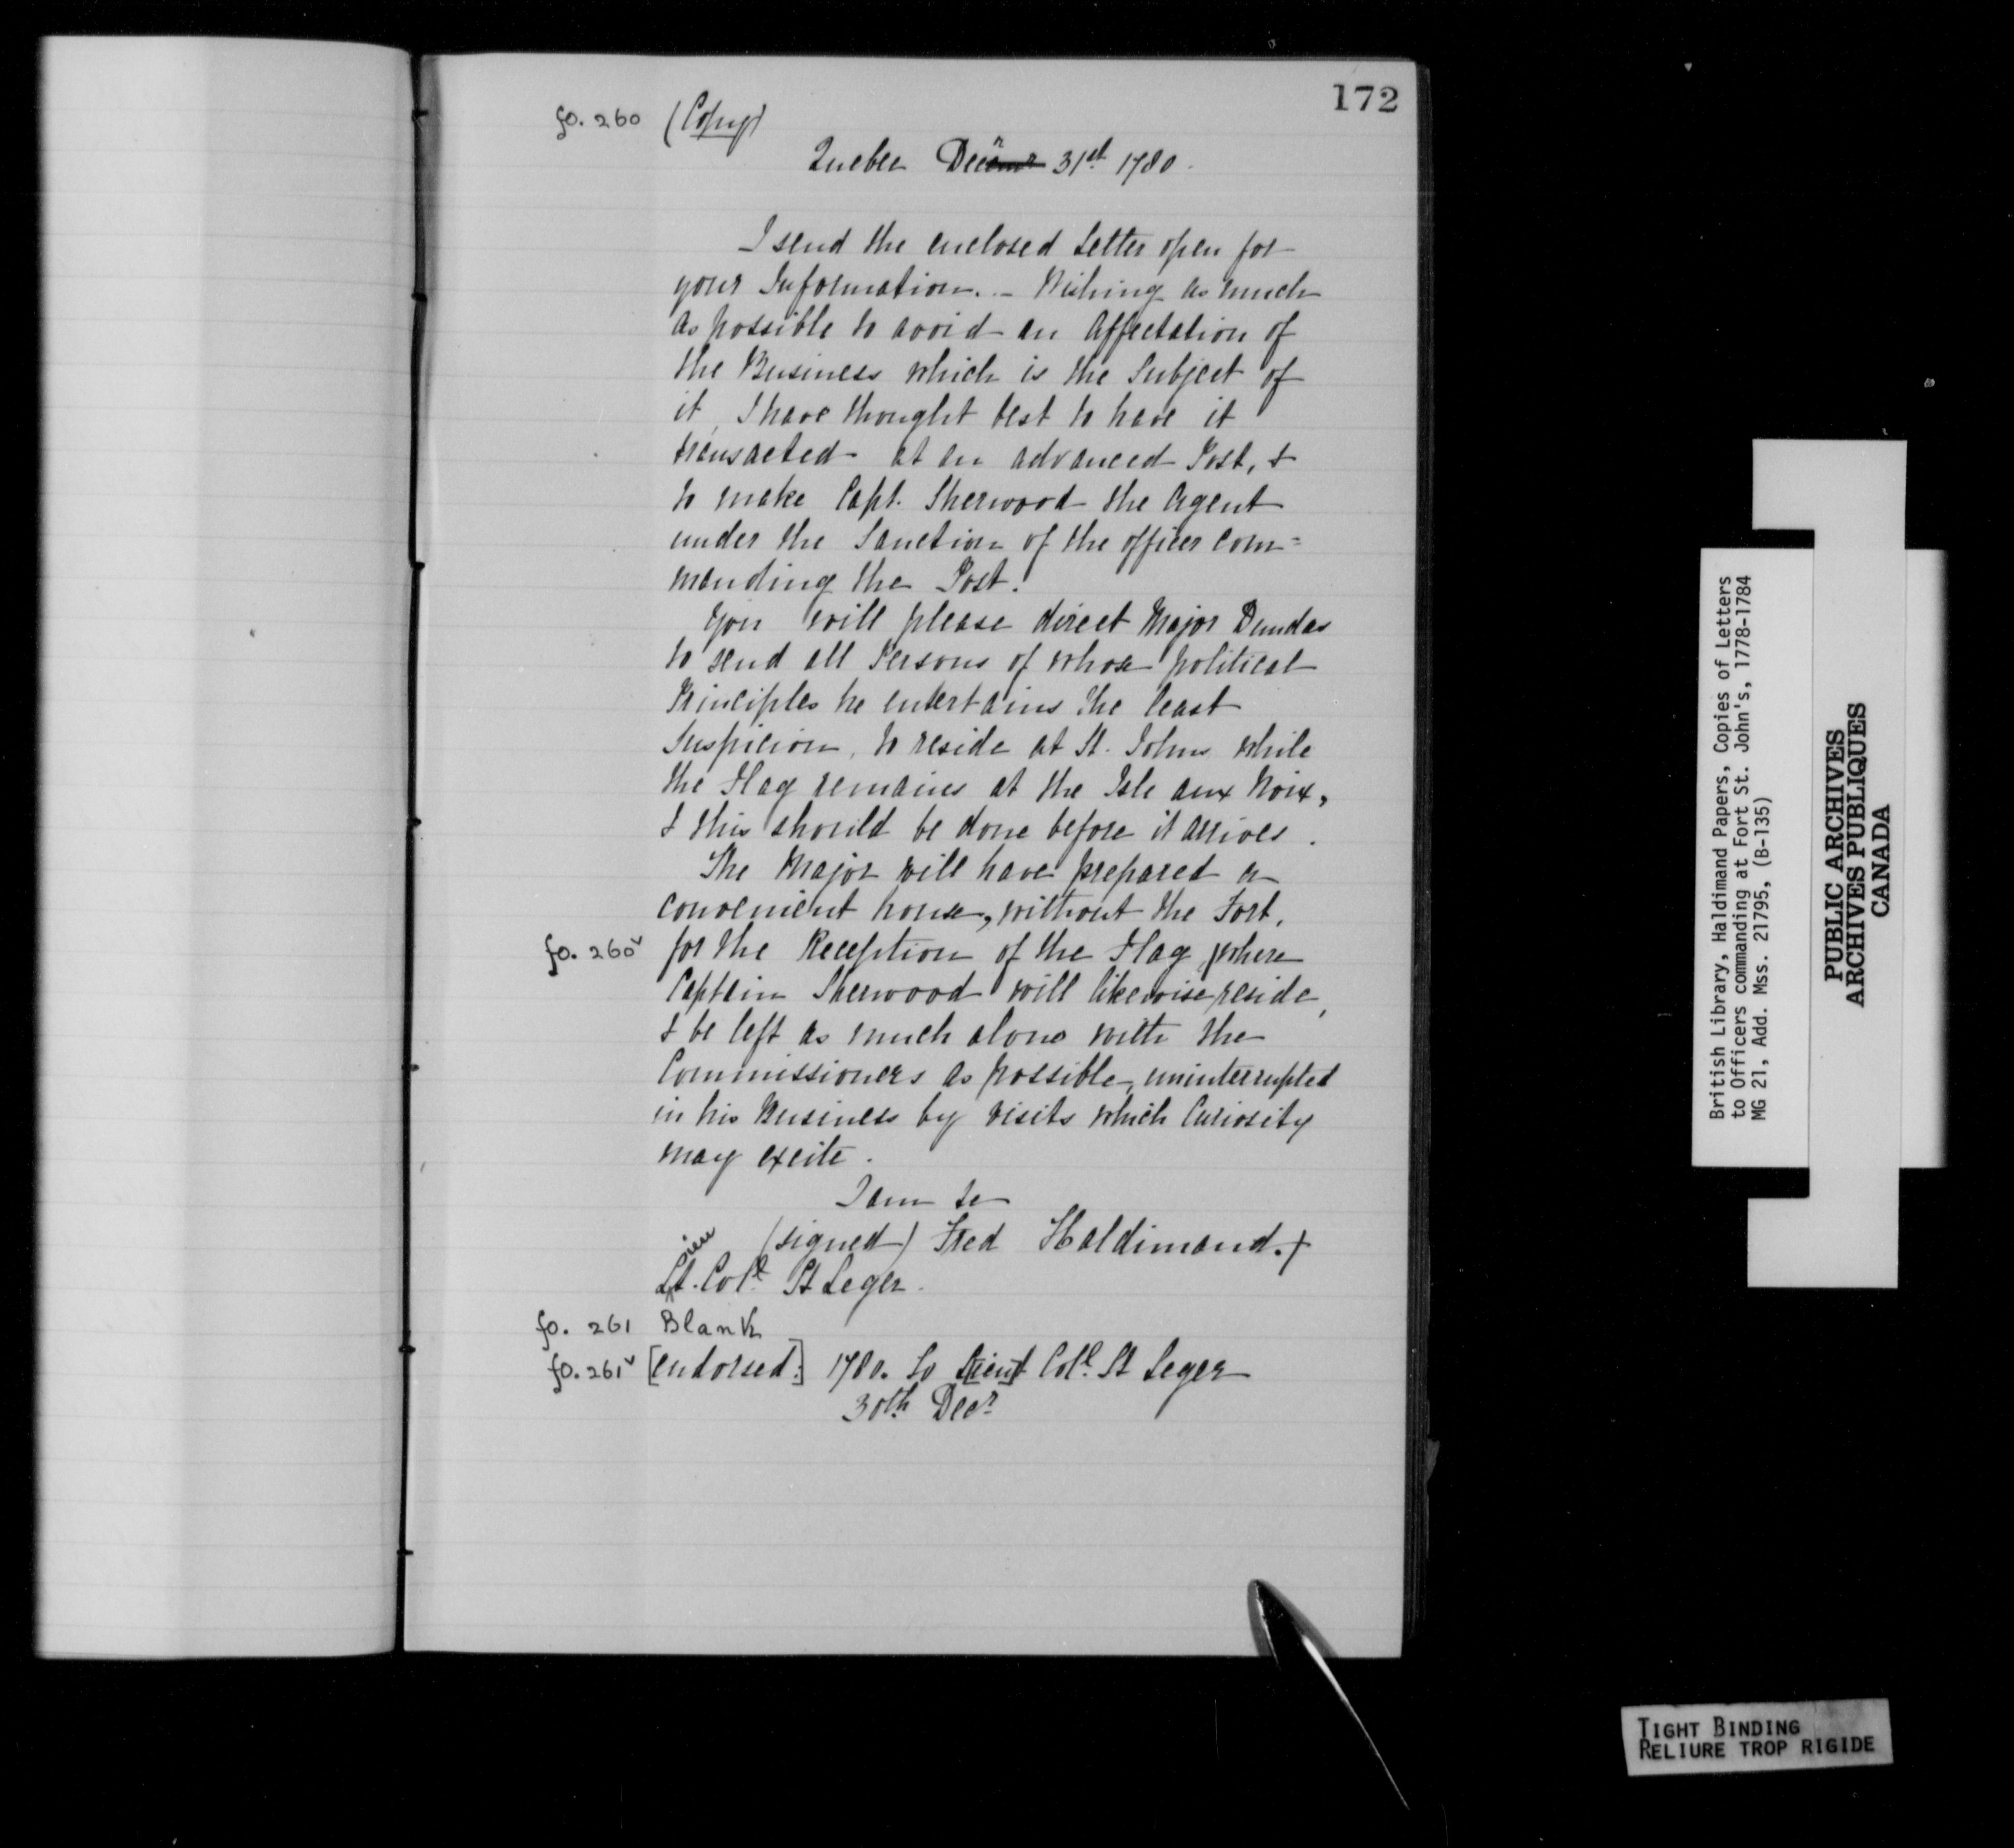 172
fo. 260 (Copy)
Quebec Decr 31st 1780.
I send the enclosed Letter open for
your Information. – Wishing as much
as possible to avoid an Affectation of
the Business which is the Subject of
it, I have thought best to have it
transacted at an advanced Post, &
to make Capt. Sherwood the Agent
under the Sanction of the officer com=
manding the Post.
You will please direct Major Dundas
to send all Persons of whose political
Principles he entertains the least
Suspicion, to reside at St. Johns while
the Flag remains at the Isle aux Noix,
& this should be done before it arrives.
The Major will have prepared a
convenient house, without the Fort,
fo. 260v for the Reception of the Flag, where
Captain Sherwood will likewise reside,
& be left as much alone with the
Commissioners as possible, uninterrupted
in his Business by visits which Curiosity
may excite.
I am &c
(signed) Fred Haldimand.
Lieut. Coll. St Leger.
fo. 261 Blank
fo. 261v [endorsed:] 1780. To L[ieu]t Coll. St Leger
30th Decr
British Library, Haldimand Papers, Copies of Letters
to Officers commanding at Fort St. John's, 1778-1784
MG 21, Add. Mss. 21795, (B-135)
PUBLIC ARCHIVES
ARCHIVES PUBLIQUES
CANADA
TIGHT BINDING
RELIURE TROP RIGIDE